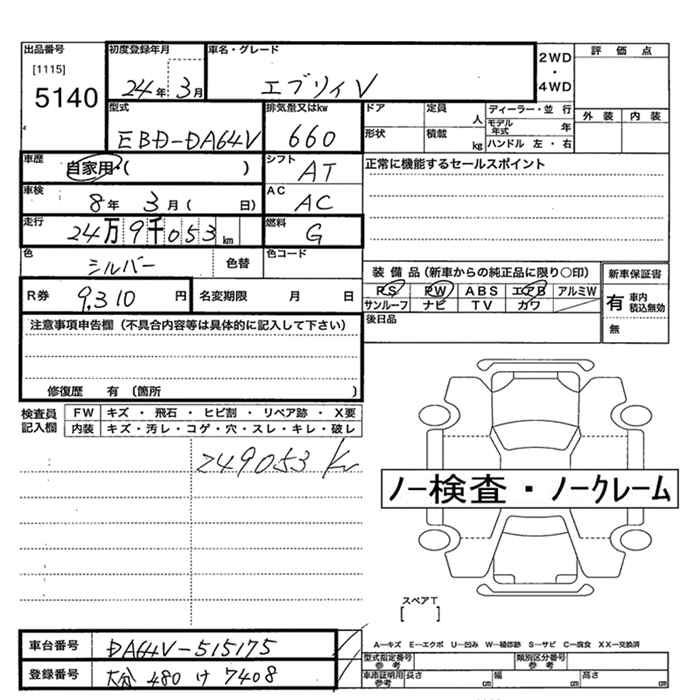 出品番号 初度登録年月 車名・グレード 評価点
[1115]
5140 24年 3月 エブリィV 2WD・4WD
型式 排気量又はkw ドア 定員 人 ディーラー・並行 外装 内装
EBD-DA64V 660 形状 積載 kg モデル年式 年
ハンドル 左・右
車歴 シフト 正常に機能するセールスポイント
自家用・( ) AT
車検 AC
8年 3月( 日) AC
走行 燃料
24万9千053km G
色 色コード
シルバー 色替 装備品(新車からの純正品に限り○印) 新車保証書
R券 9,310円 名変期限 月 日 PS PW ABS エアB アルミW 有 車内積込無効
サンルーフ ナビ TV カワ
注意事項申告欄(不具合内容等は具体的に記入して下さい) 後日品 無
修復歴 有(箇所 )
検査員記入欄 FW キズ・飛石・ヒビ割・リペア跡・X要
内装 キズ・汚レ・コゲ・穴・スレ・キレ・破レ
249053 Km
ノー検査・ノークレーム
スペアT
[ ]
車台番号 DA64V-515175 A—キズ E—エクボ U—凹み W—補修跡 S—サビ C—腐食 XX—交換済
型式指定番号参考 類別区分番号参考
登録番号 大分 480 け 7408 車庫証明用参考 長さ cm 幅 cm 高さ cm